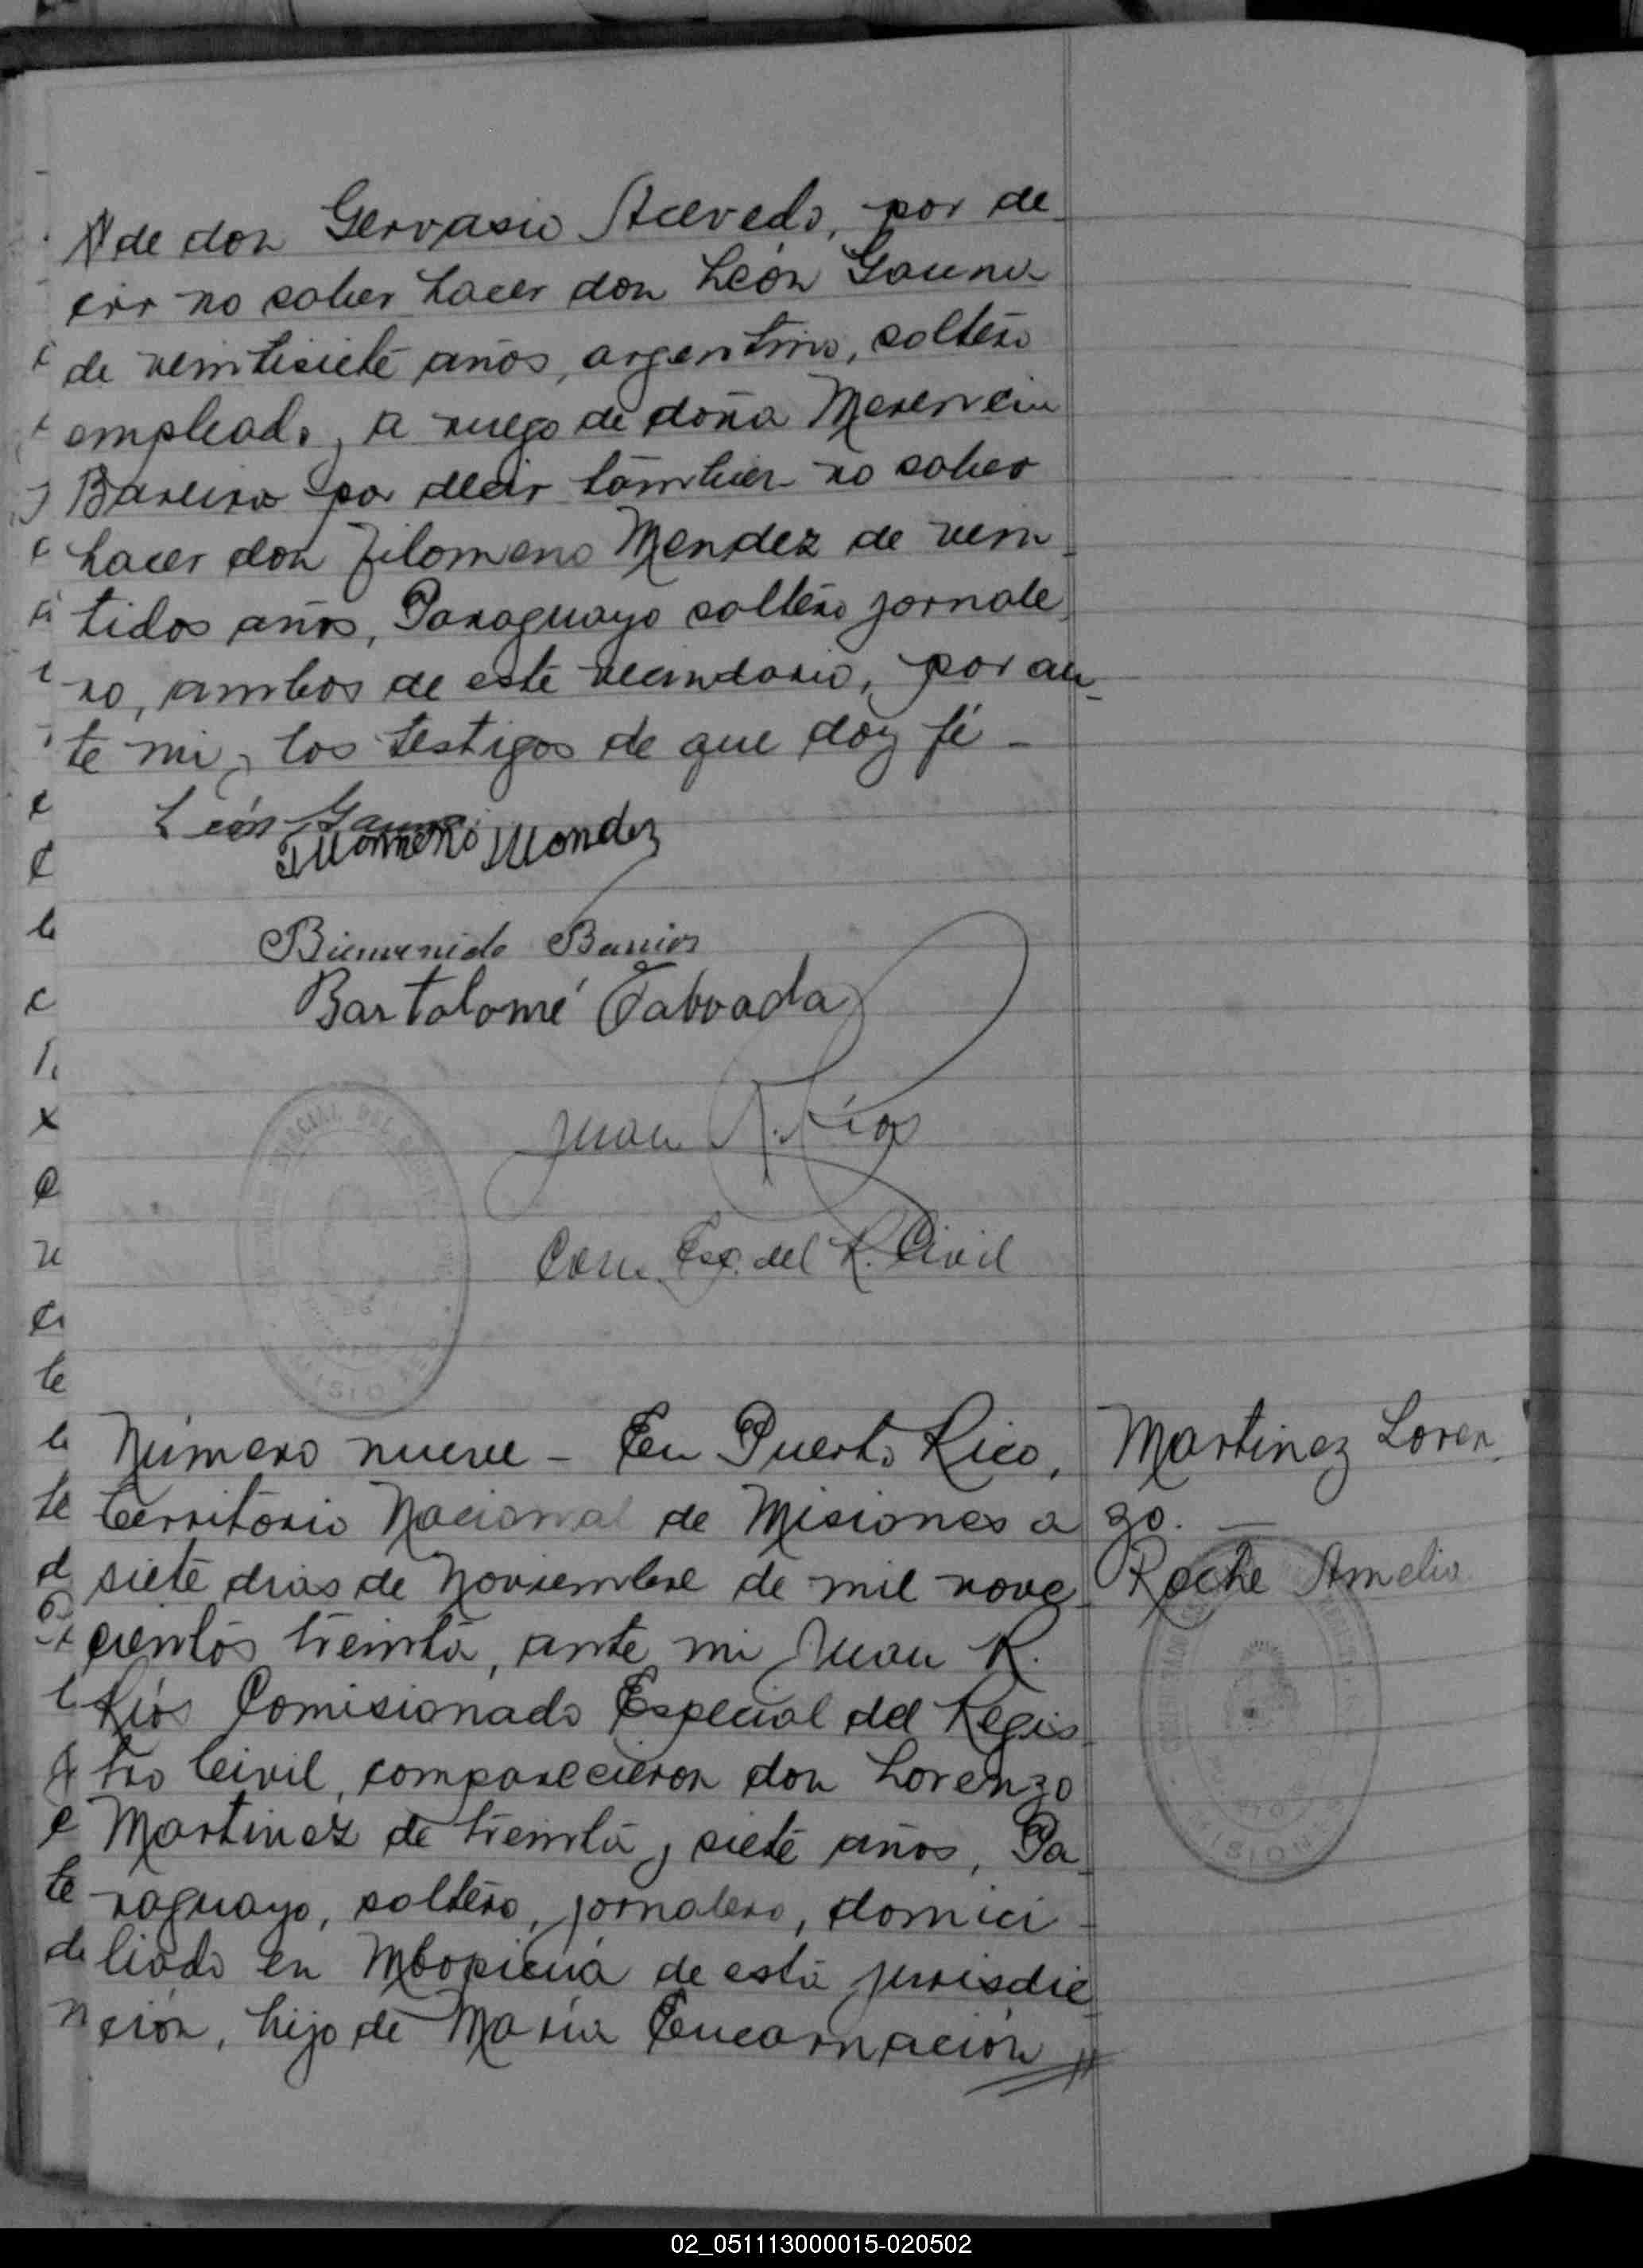 de don Gervasio Acevedo, por de
cir no saber hacer don León Gauna
de veintisiete años, argentino, soltero
empleado, a ruego de doña
Bareiro por decir tambien no saber
hacer don Filomeno Mendez de vein
tidos años, Paraguayo soltero jornale
ro, ambos de este vecindario, por an-
te mi y los testigos de que doy fé -
León Gauna
Filomeno Mendez
Bienvenido Barrios
Bartolomé Taboada
Juan R. Ríos
Com. Esp. del R. Civil
Número nueve - En Puerto Rico,
territorio Nacional de Misiones a
siete dias de Noviembre de mil nove
cientos treinta, ante mi Juan R.
Ríos Comisionado Especial del Regis
tro Civil, comparecieron don Lorenzo
Martinez de treinta y siete años, Pa
raguayo, soltero, jornalero, domici-
liado en Mbopicuá de esta jurisdic
ción, hijo de María Encarnación
Martinez Loren
zo. —
Roche Amelia
MISIONES
02_051113000015-020502